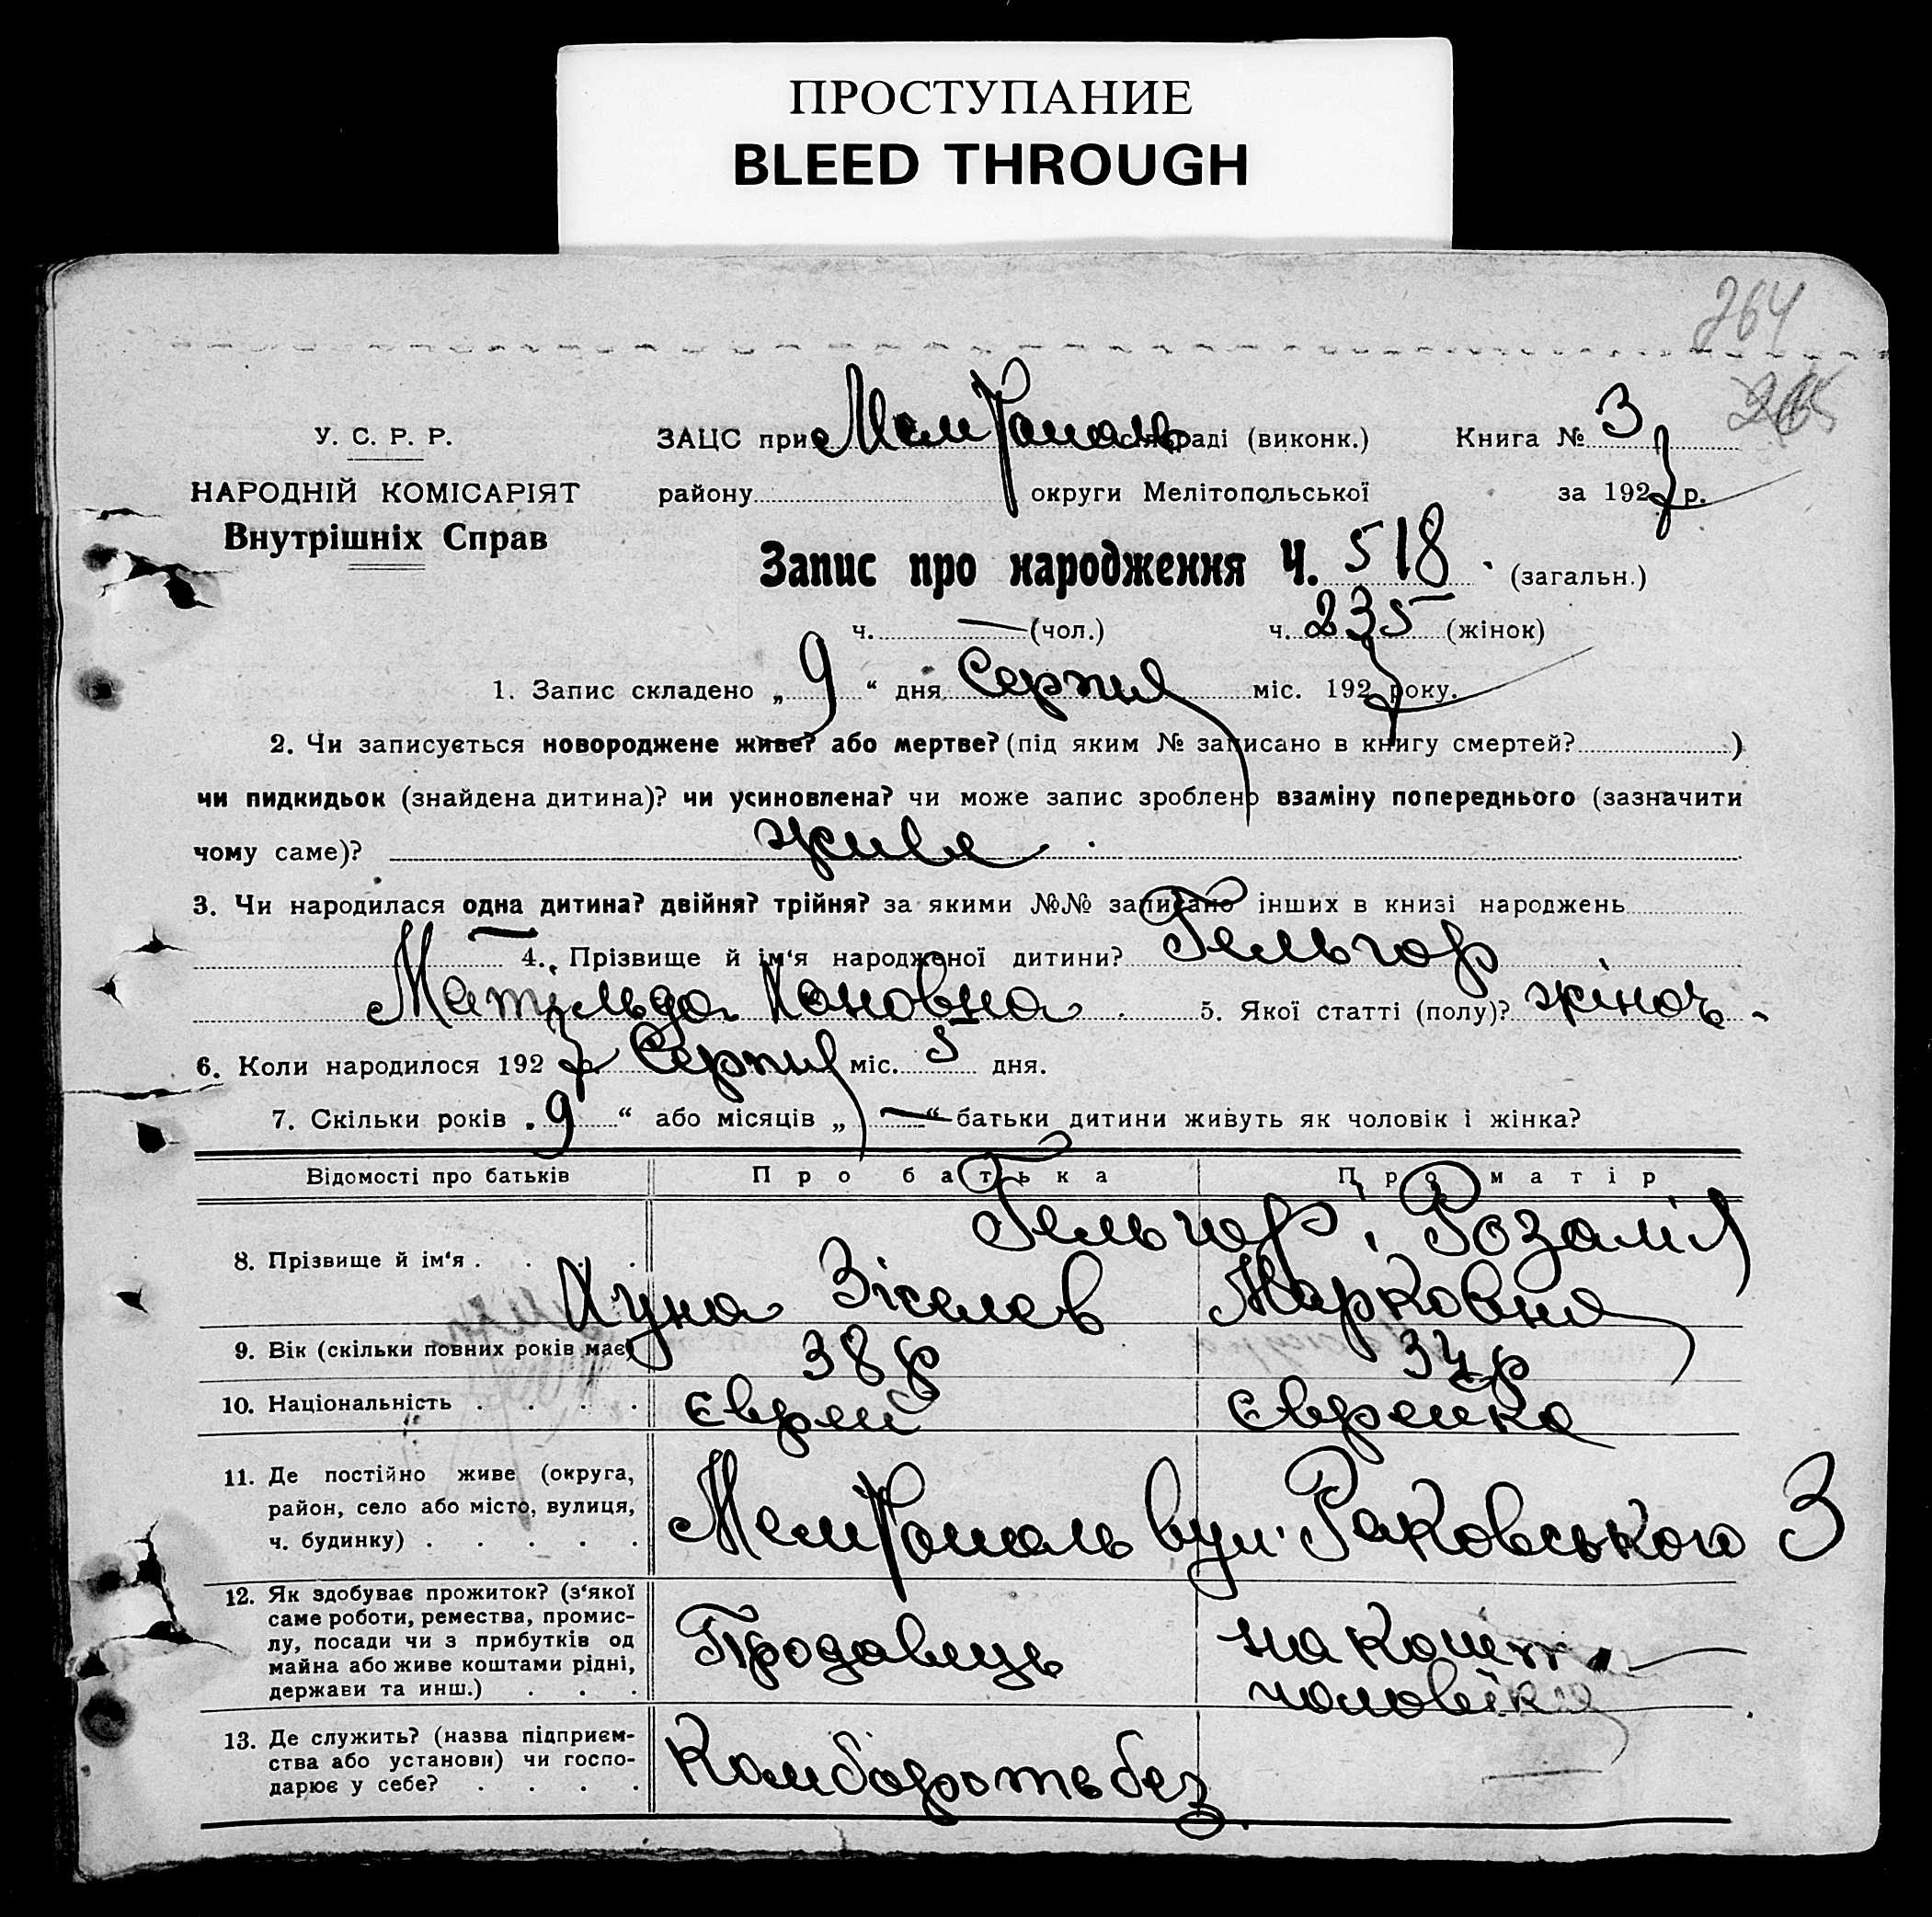 ПРОСТУПАНИЕ
BLEED THROUGH
264
У. С. Р. Р.
НАРОДНІЙ КОМІСАРІЯТ
Внутрішніх Справ
ЗАЦС при Мелітополь раді (виконк.) Книга № 3
району округи Мелітопольської за 1927 р.
Запис про народження Ч. 518 (загальн.)
ч. — (чол.) ч. 235 (жінок)
1. Запис складено „ 9 “ дня Серпня міс. 1927 року.
2. Чи записується новороджене живе? або мертве? (під яким № записано в книгу смертей? )
чи пидкидьок (знайдена дитина)? чи усиновлена? чи може запис зроблено взаміну попереднього (зазначити
чому саме)? живе
3. Чи народилася одна дитина? двійня? трійня? за якими №№ записано інших в книзі народжень
4. Прізвище й ім‘я народженої дитини? Гельгор
Матільда Хановна 5. Якої статті (полу)? жіноч.
6. Коли народилося 1927 р. Серпня міс. 5 дня.
7. Скільки років „ 9 “ або місяців „ — “ батьки дитини живуть як чоловік і жінка?
Відомості про батьків Про батька Про матір
8. Прізвище й ім‘я . . . . Гельгор, Розалія
Хуна Зіселев Марковна
9. Вік (скільки повних років має) 38 р 34 р
10. Національність . . . . єврей єврейка
11. Де постійно живе (округа,
район, село або місто, вулиця,
ч. будинку) . . . . . Мелітополь вул. Раковського 3
12. Як здобуває прожиток? (з‘якої
саме роботи, ремества, промис-
лу, посади чи з прибутків од
майна або живе коштами рідні,
держави та инш.) . . . Продавець на кошти
чоловіка
13. Де служить? (назва підприєм-
ства або установи) чи госпо-
дарює у себе? . . . .